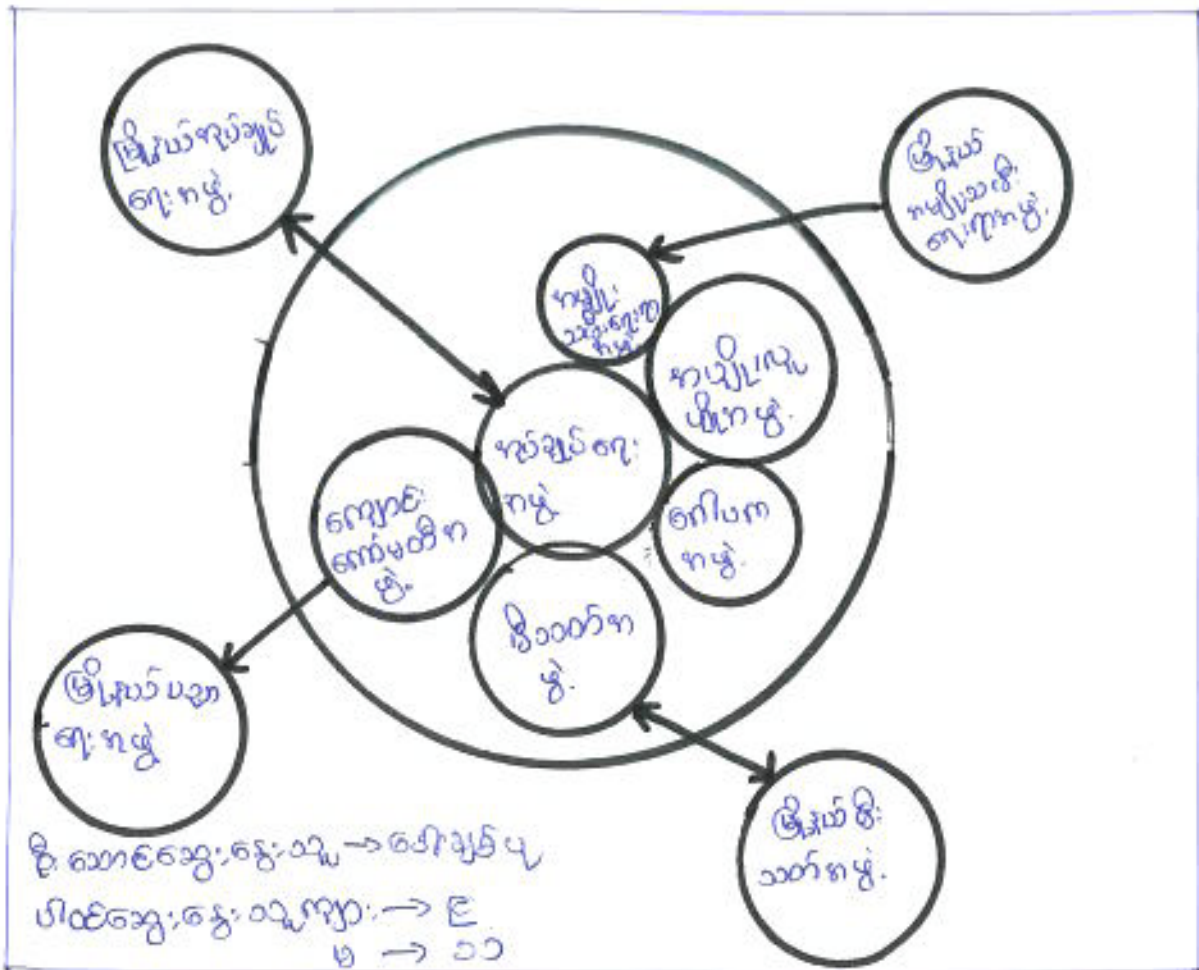 မြို့နယ်အုပ်ချုပ်
ရေးအဖွဲ့
မြို့နယ်
အမျိုးသမီး
ရေးရာအဖွဲ့
အမျိုး
သမီးရေးရာ
အဖွဲ့
အုပ်ချုပ်ရေး
အဖွဲ့
ကျောင်း
ကော်မတီအ
ဖွဲ့
ဂေါပက
အဖွဲ့
မီးသတ်အ
ဖွဲ့
မြို့နယ်ပညာ
ရေးအဖွဲ့
မြို့နယ်မီး
သတ်အဖွဲ့
ဦးဆောင်ဆွေးနွေးသူ →
ပါဝင်ဆွေးနွေးသူကျား → ၉
မ → ၁၁